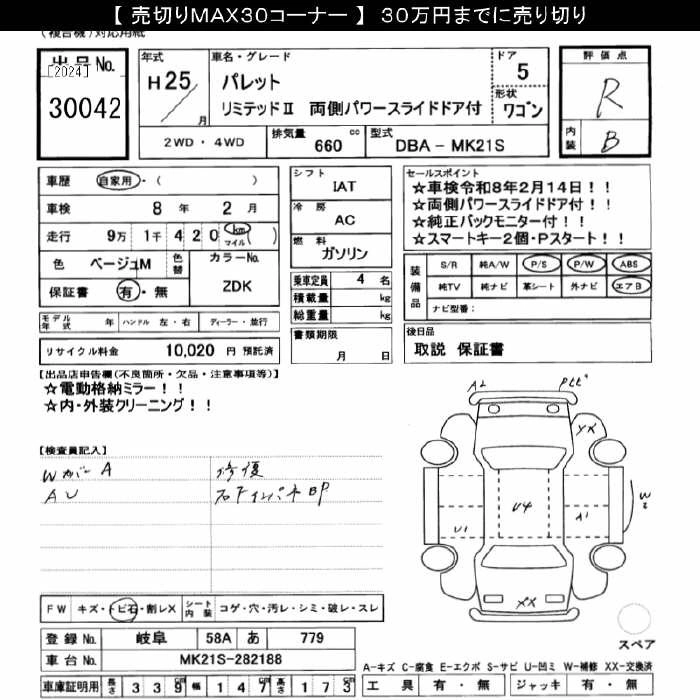 【 売切りMAX30コーナー 】 30万円までに売り切り
(複合機)対応用紙
出品No.
[2024]
30042
年式
H25
月
車名・グレード
パレット
リミテッドII 両側パワースライドドア付
ドア
5
形状
ワゴン
2WD・4WD
排気量
660 cc
型式
DBA - MK21S
評価点
R
内装
B
車歴 自家用・( )
車検 8 年 2 月
走行 9万 1千 4 2 0 km マイル ( )
色 ベージュM 色替
カラーNo.
ZDK
保証書 有・無
シフト
IAT
冷房
AC
燃料
ガソリン
乗車定員 4 名
積載量 kg
総重量 kg
セールスポイント
☆車検令和8年2月14日!!
☆両側パワースライドドア付!!
☆純正バックモニター付!!
☆スマートキー2個・Pスタート!!
装備品
S/R 純A/W P/S P/W ABS
純TV 純ナビ 革シート 外ナビ エアB
ナビ型番:
モデル年式 年 ハンドル 左・右 ディーラー・並行
リサイクル料金 10,020 円 預託済
書類期限
月 日
後日品
取説 保証書
【出品店申告欄(不良箇所・欠品・注意事項等)】
☆電動格納ミラー!!
☆内・外装クリーニング!!
【検査員記入】
Wカバー A
AU
修復
右下インパネBP
A2
XX
W2
U1
U4
A1
XX
FW キズ・トビ石・割レX
シート内装 コゲ・穴・汚レ・シミ・破レ・スレ
登録 No. 岐阜 58A あ 779
車台 No. MK21S-282188
車庫証明用 長さ 3 3 9 cm 幅 1 4 7 cm 高さ 1 7 3 cm
スペア
A-キズ C-腐食 E-エクボ S-サビ U-凹ミ W-補修 XX-交換済
工具 有・無 ジャッキ 有・無